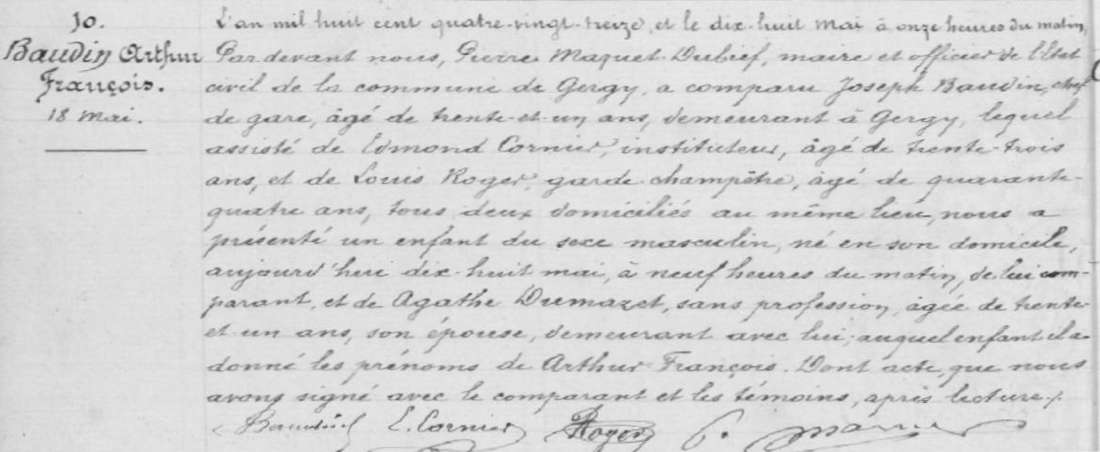 10.
Baudin Arthur
François.
18 mai.
L'an mil huit cent quatre-vingt-treize, et le dix-huit mai à onze heures du matin,
Par devant nous, Pierre Maquet-Dubief, maire et officier de l'Etat
civil de la commune de Gergy, a comparu Joseph Baudin, chef
de gare, âgé de trente-et-un ans, demeurant à Gergy, lequel
assisté de Edmond Cornier, instituteur, âgé de trente-trois
ans, et de Louis Roger, garde-champêtre, âgé de quarante-
quatre ans, tous deux domiciliés au même lieu, nous a
présenté un enfant du sexe masculin, né en son domicile,
aujourd'hui dix-huit mai, à neuf heures du matin, de lui com-
parant, et de Agathe Dumazet, sans profession, âgée de trente-
et-un ans, son épouse, demeurant avec lui, auquel enfant il a
donné les prénoms de Arthur François. Dont acte, que nous
avons signé avec le comparant et les témoins, après lecture.
Baudin E. Cornier Roger